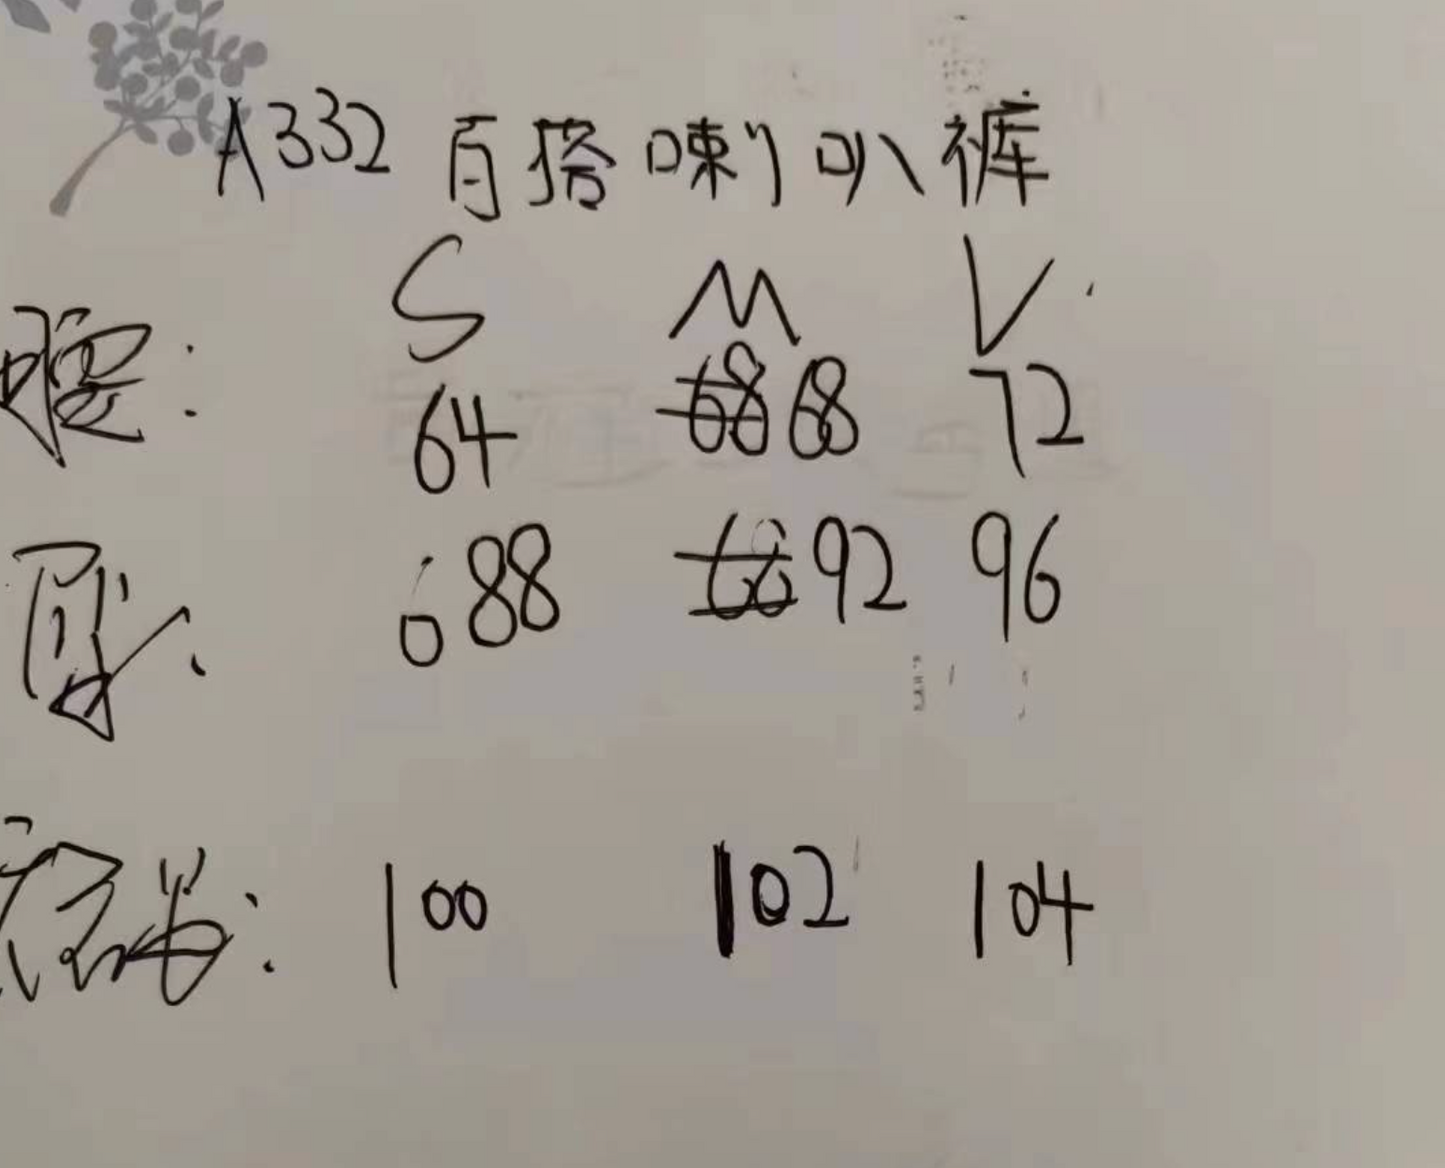 A332 百搭喇叭裤
S M L
腰: 64 68 72
臀: 88 92 96
裤长: 100 102 104